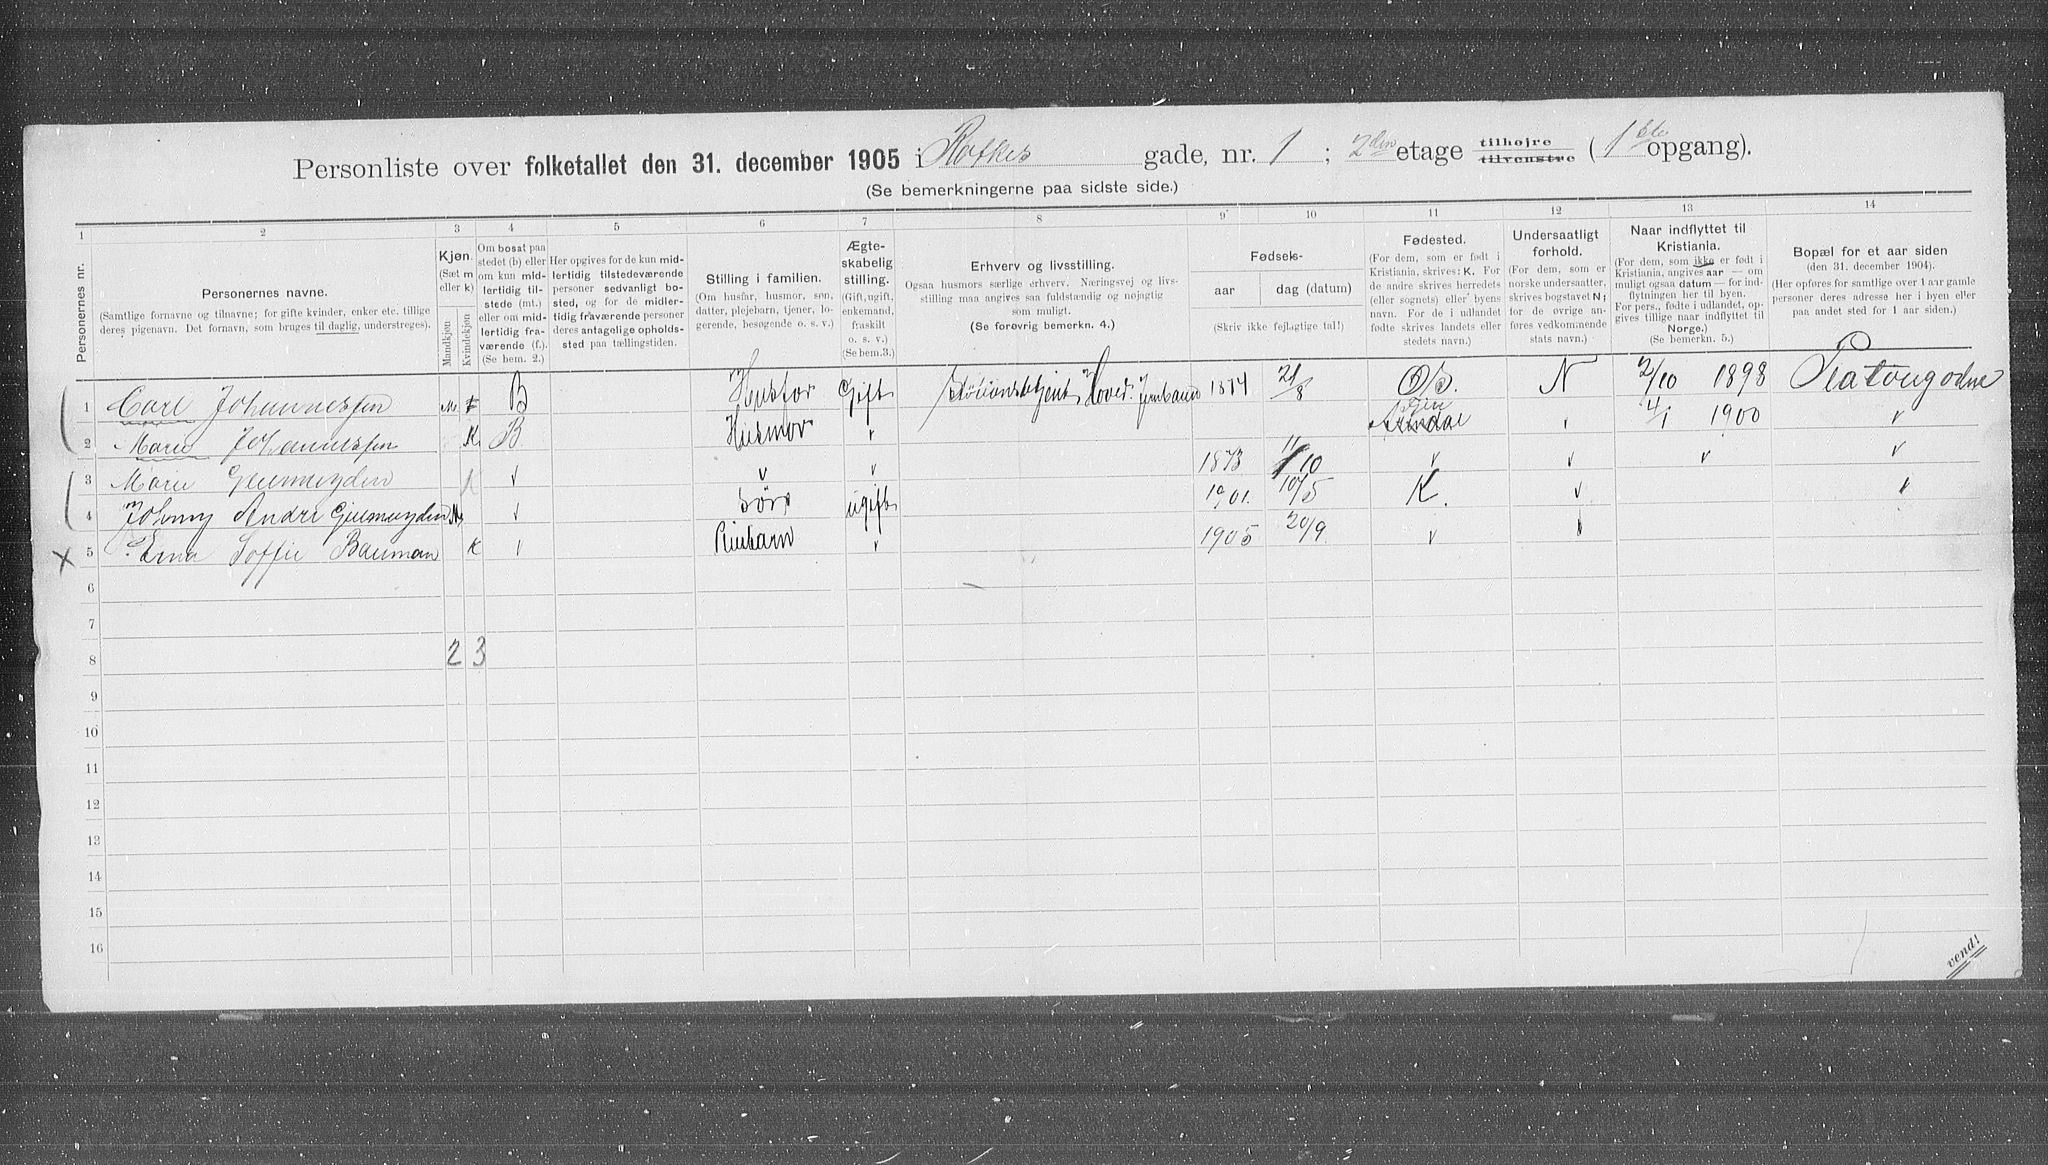 Personliste over folketallet den 31. december 1905 i Rathkes gade, nr. 1 ; 2den etage tilhøjre tilvenstre ( 1ste opgang).
(Se bemerkningerne paa sidste side.)
1 2 3 4 5 6 7 8 9 10 11 12 13 14
Personernes nr.
Personernes navne.
(Samtlige fornavne og tilnavne; for gifte kvinder, enker etc. tillige deres pigenavn. Det fornavn, som bruges til daglig, understreges).
Kjøn.
(Sæt m eller k)
Mandkjøn
Kvindekjøn
Om bosat paa stedet (b) eller om kun midlertidig tilstede (mt.) eller om midlertidig fraværende (f.). (Se bem. 2.)
Her opgives for de kun midlertidig tilstedeværende personer sedvanlig bosted, og for de midlertidig fraværende personer deres antagelige opholdssted paa tællingstiden.
Stilling i familien.
(Om husfar, husmor, søn, datter, plejebarn, tjener, logerende, besøgende o. s. v.)
Ægteskabelig stilling.
(Gift, ugift, enkemand, fraskilt o. s. v.)
(Se bem.3.)
Erhverv og livsstilling.
Ogsaa husmors særlige erhverv. Næringsvej og livsstilling maa angives saa fuldstændig og nøjagtig som muligt.
(Se forøvrig bemerkn. 4.)
Fødsels-
aar
dag (datum)
(Skriv ikke fejlagtige tal!)
Fødested.
(For dem, som er født i Kristiania, skrives: K. For de andre skrives herredets (eller sognets) eller byens navn. For de i udlandet fødte skrives landets eller stedets navn.)
Undersaatligt forhold.
(For dem, som er norske undersaatter, skrives bogstavet N; for de øvrige anføres vedkommende stats navn.)
Naar indflyttet til Kristiania.
(For dem, som ikke er født i Kristiania, angives aar — om muligt ogsaa datum — for indflytningen her til byen. For pers., fødte i udlandet, opgives tillige naar indflyttet til Norge.)
(Se bemerkn. 5.)
Bopæl for et aar siden
(den 31. december 1904).
(Her opføres for samtlige over 1 aar gamle personer deres adresse her i byen eller paa andet sted for 1 aar siden.)
1 Carl Johannessen M. B Husfar Gift Hoved. Jernbanen 1874 21/8 N 2/10 1898
2 Marie Johannessen K B Husmor v v 4/1 1900 v
3 Marie Gjermeyden K v v v 1873 11/10 v v v v
4 Johnny Andre Gjermeyden M v Søn ugift 1901. 10/5 K. v v
5 Erna Soffie Bauman K v Pleiebarn v 1905 20/9 v
6
7
8 2 3
9
10
11
12
13
14
15
16
vend!